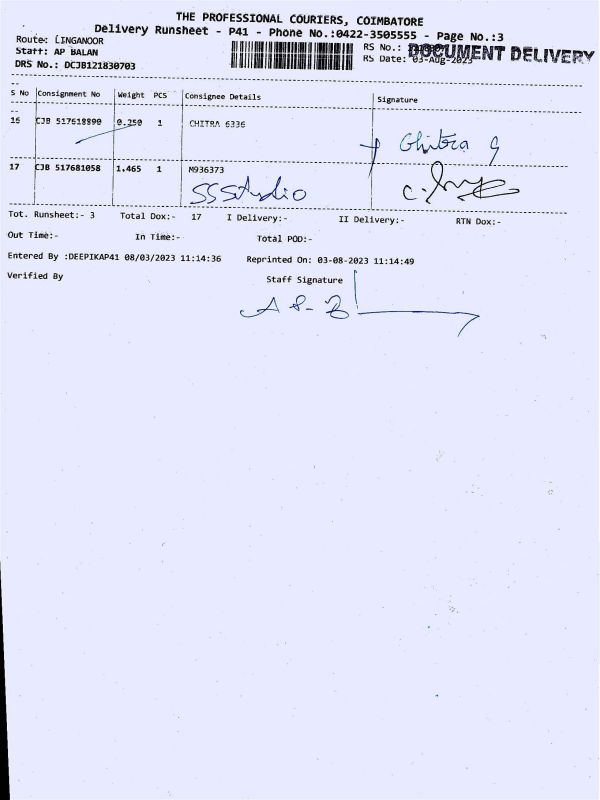 THE PROFESSIONAL COURIERS, COIMBATORE
Delivery Runsheet - P41 - Phone No.:0422-3505555 - Page No.:3
Route: LINGANOOR
RS No.:
DOCUMENT DELIVERY
Staff: AP BALAN
RS Date: 03-Aug-2023
DRS No.: DCJB121830703
S No Consignment No Weight PCS Consignee Details Signature
16 CJB 517618990 0.250 1 CHITRA 6336
Chitra G
17 CJB 517681058 1.465 1 M936373
SS Studio
Tot. Runsheet:- 3 Total Dox:- 17 I Delivery:- II Delivery:- RTN Dox:-
Out Time:- In Time:- Total POD:-
Entered By :DEEPIKAP41 08/03/2023 11:14:36 Reprinted On: 03-08-2023 11:14:49
Verified By Staff Signature